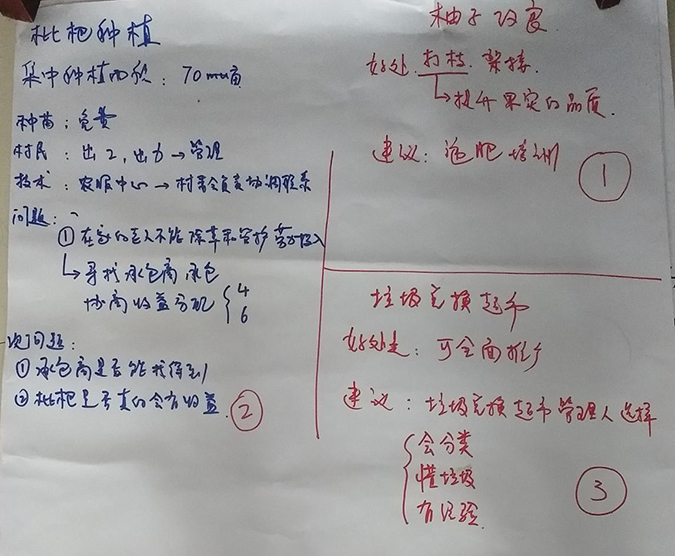 枇杷种植
集中种植面积：70mu亩
种苗：免费
村民：出工，出力→管理
技术：农服中心→村委会负责协调联系
问题：
①在家的老人不能除草和管护劳力投入
↳寻找承包商承包
协商收益分配{4
6
次问题：
①承包商是否能找得到
②枇杷是否真的会有收益
②
柚子改良
好处 打枝 嫁接.
↳提升果实的品质.
建议：施肥培训
①
垃圾兑换超市
好处是：可全面推广
建议：垃圾兑换超市管理人选择
{会分类
懂垃圾
有经验
③